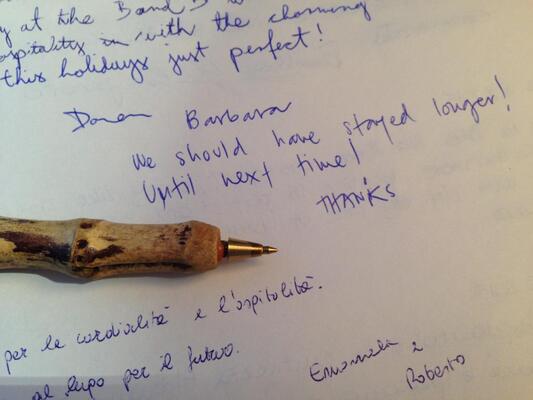 at the B and B
hospitality in with the charming
this holidays just perfect!
Barbara
We should have stayed longer!
Until next time!
THANKS
per la cordialità e l'ospitalità.
al lupo per il futuro.
Emanuela e
Roberto